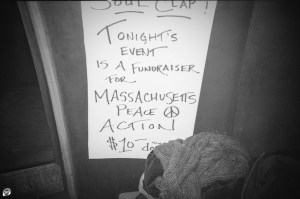 SOUL CLAP!
TONIGHT'S
EVENT
IS A FUNDRAISER
FOR
MASSACHUSETTS
PEACE
ACTION!
$10